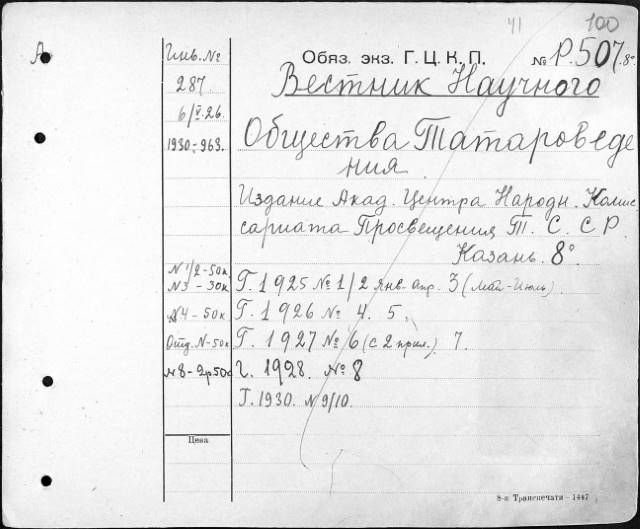 41 100
А
Инв. №
Обяз. экз. Г. Ц. К. П. № Р.507.8°
287
Вестник Научного
6/V.26.
1930-963.
Общества Татароведе
ния.
Издание Акад. Центра Народн. Комис
сариата Просвещения Т. С. С Р.
Казань. 8°
N 1/2-50к
N3-30к
Г. 1925 № 1/2 янв-апр. 3 (Май-Июль)
N4-50к Г. 1926 № 4. 5.
Отд. N-50к Г. 1927 № 6 (с 2 прил.) 7.
N8-2р50к Г. 1928. № 8
Г. 1930. N 9/10.
Цена
8-я Транспечати - 1447